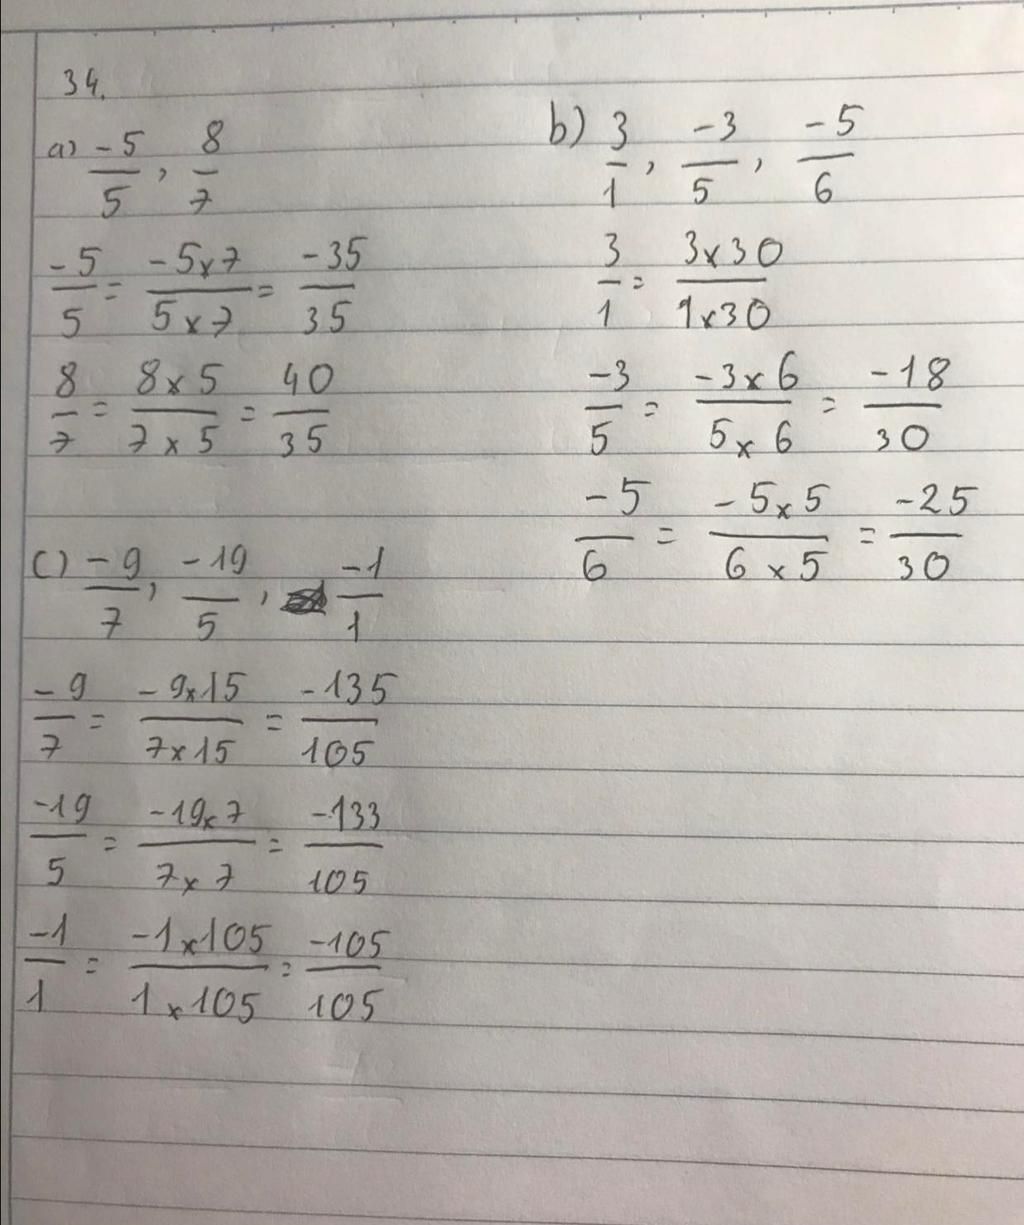 34.
a) -5/5, 8/7
-5/5 = -5x7/5x7 = -35/35
8/7 = 8x5/7x5 = 40/35
b) 3/1, -3/5, -5/6
3/1 = 3x30/1x30
-3/5 = -3x6/5x6 = -18/30
-5/6 = -5x5/6x5 = -25/30
c) -9/7, -19/5, -1/1
-9/7 = -9x15/7x15 = -135/105
-19/5 = -19x7/7x7 = -133/105
-1/1 = -1x105/1x105 = -105/105